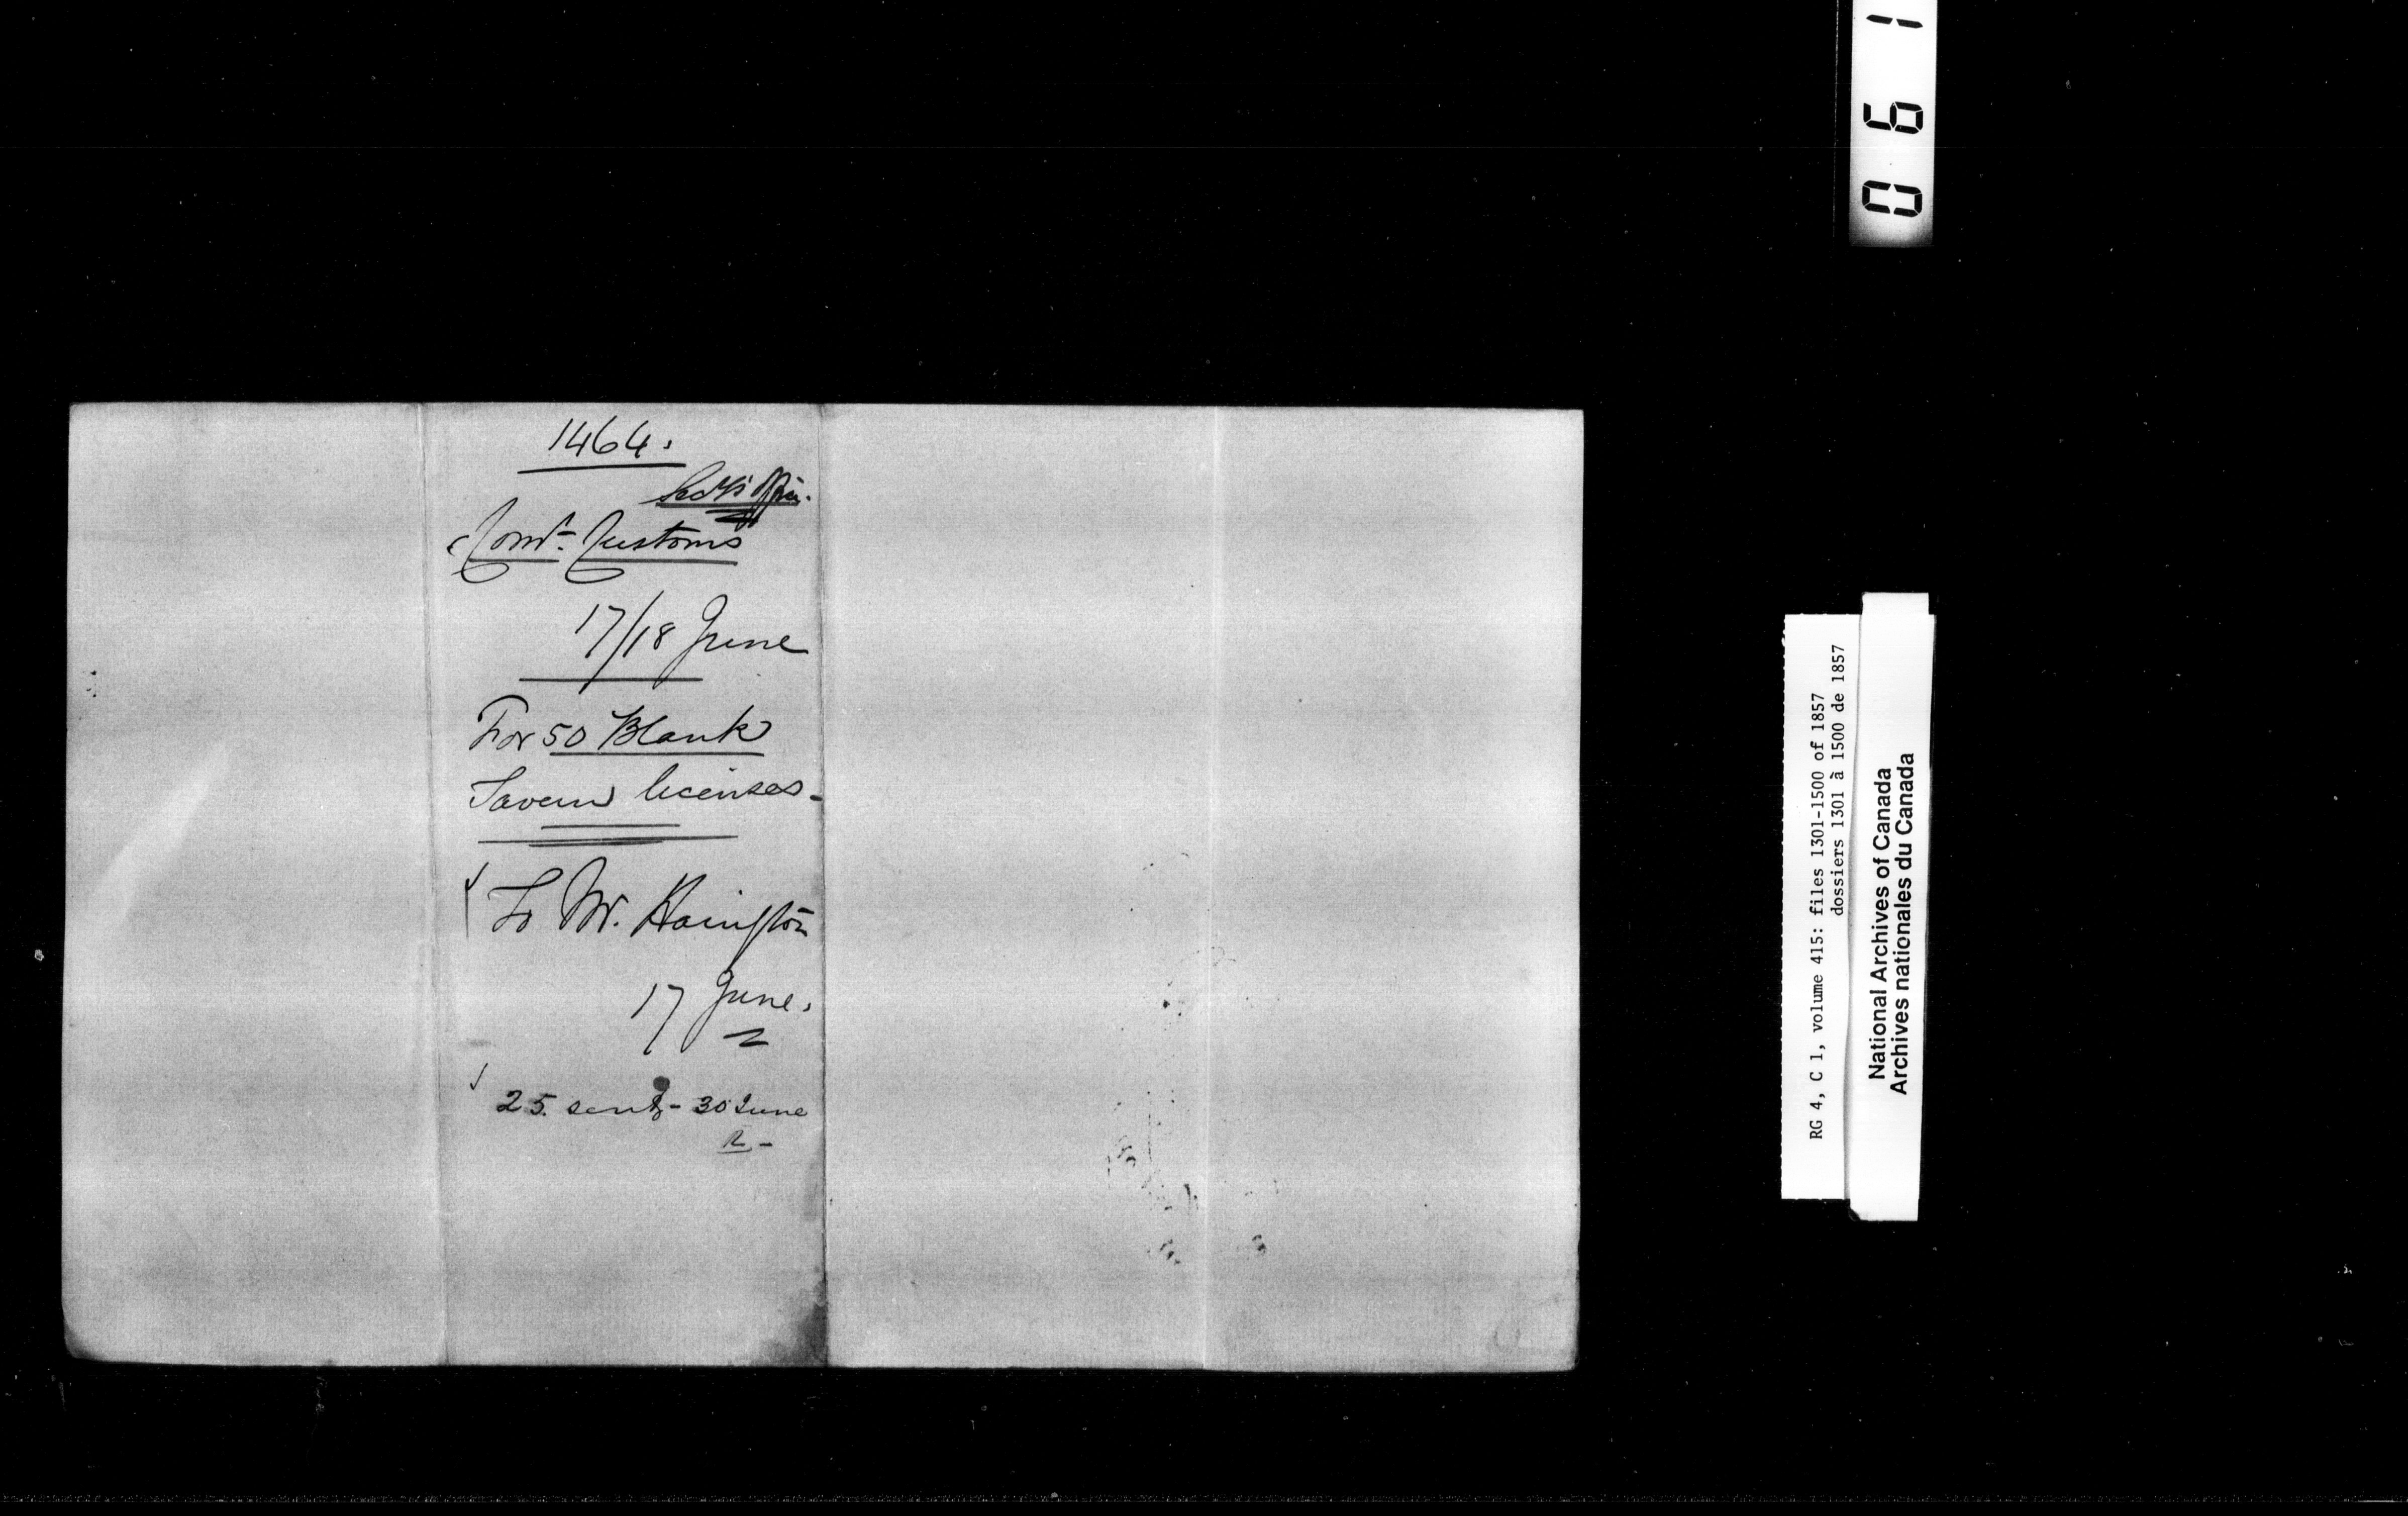 1464.
Secy's Office.
Comr. Customs
17/18 June
For 50 Blank
Tavern licenses-
To Mr.
17 June.
25. sent - 30 June
R -
061
RG 4, C 1, volume 415: files 1301-1500 of 1857
dossiers 1301 à 1500 de 1857
National Archives of Canada
Archives nationales du Canada